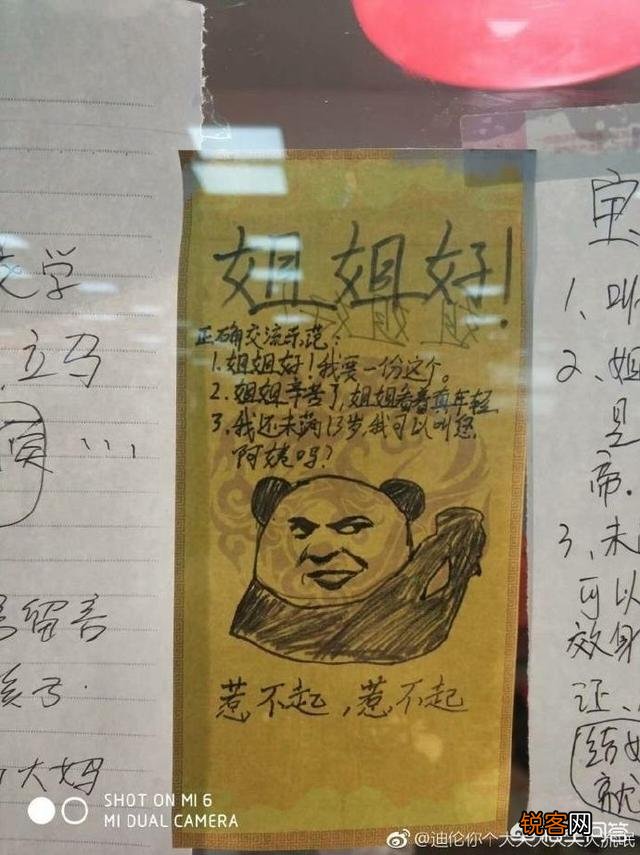 文学
立马
姐姐好!
正确交流示范:
1.姐姐好!我要一份这个。
2.姐姐辛苦了,姐姐看着真年轻
3.我还未满13岁,我可以叫您
阿姨吗?
惹不起,惹不起
留言
大妈
1、叫
2、姐
是
帝.
3、未
可以
效身
证、
SHOT ON MI 6
MI DUAL CAMERA
锐客网
@迪伦你个大